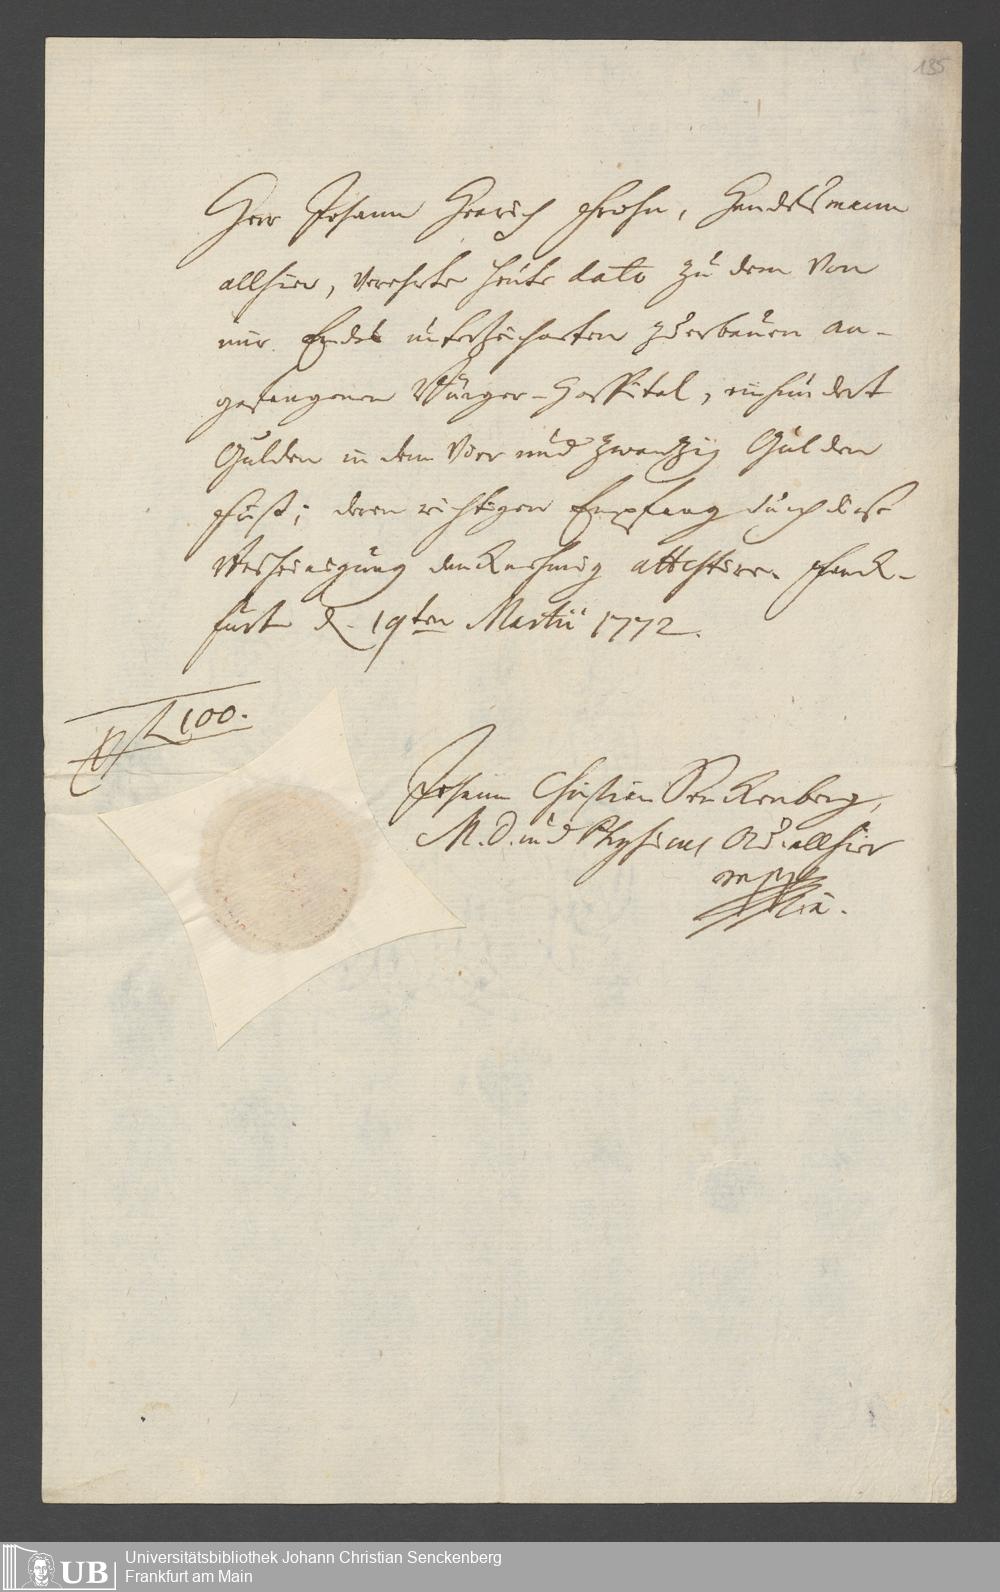 135
Herr Johann Henrich Frohn, Handelsmann
allhier, verehrte heute dato zu dem von
mir Endes unterzeichneten zu erbauen an-
gefangenen Bürger-Hospital, einhundert
Gulden in dem Vier und zwanzig Gulden
Fuß; deren richtigen Empfang durch diese
Bescheinigung danknehmig attestire. Franck-
furt d. 19ten Martii 1772.
100.
Johann Christian Senckenberg,
M.D. und Physicus Ord. allhier
mppria.
Universitätsbibliothek Johann Christian Senckenberg
UB Frankfurt am Main